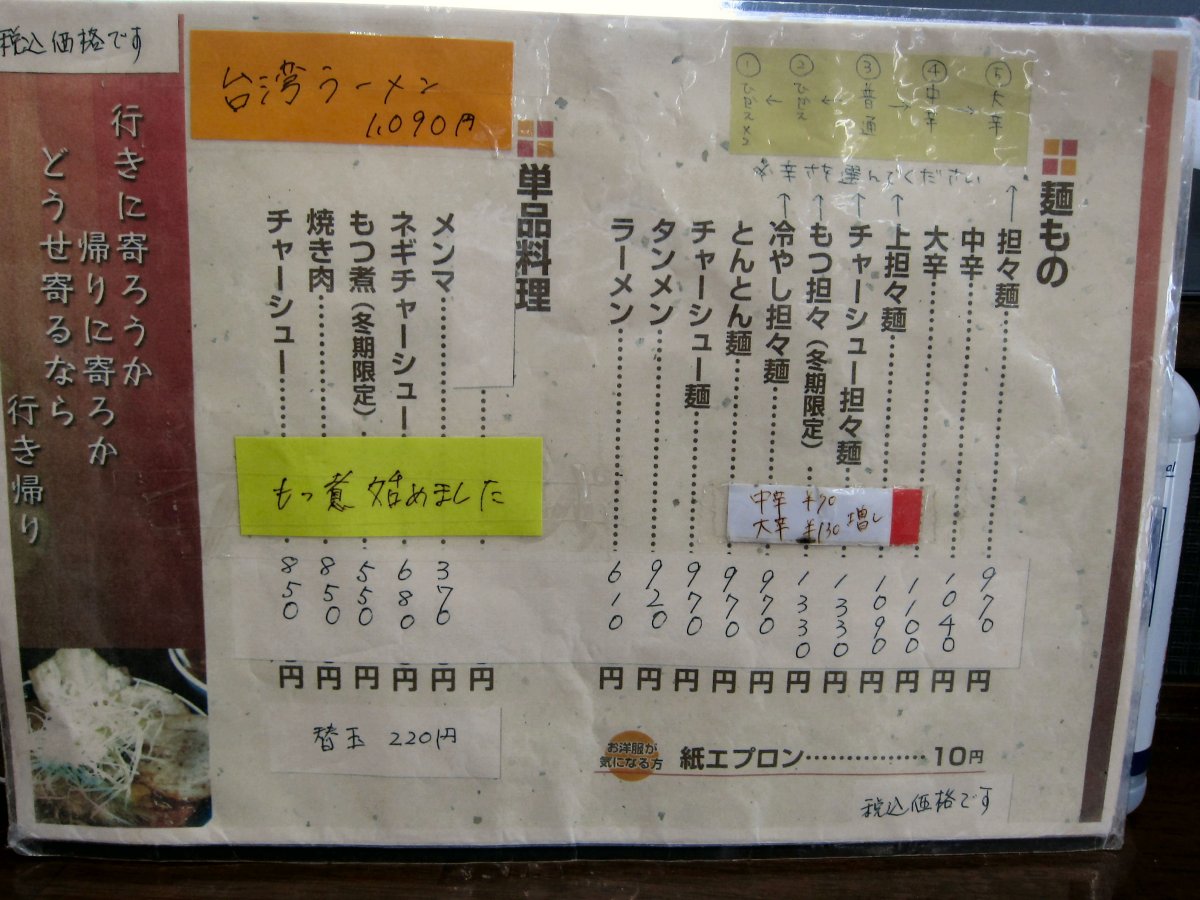 ⑤大辛
④中辛
③普通
②ひかえ
①
※辛さを選んでください
麺もの
担々麺 970円
中辛 1040円
大辛 1100円
上担々麺 1090円
チャーシュー担々麺 1330円
もつ担々(冬期限定) 1330円
冷やし担々麺 970円
とんとん麺 970円
チャーシュー麺 970円
タンメン 920円
ラーメン 610円
中辛 ¥70
大辛 ¥130 増し
お洋服が
気になる方
紙エプロン……………10円
税込価格です
単品料理
円
メンマ 370円
ネギチャーシュー 680円
もつ煮(冬期限定) 550円
焼き肉 850円
チャーシュー 850円
台湾ラーメン
1,090円
もつ煮始めました
替玉 220円
税込価格です
行きに寄ろうか
帰りに寄ろか
どうせ寄るなら
行き帰り